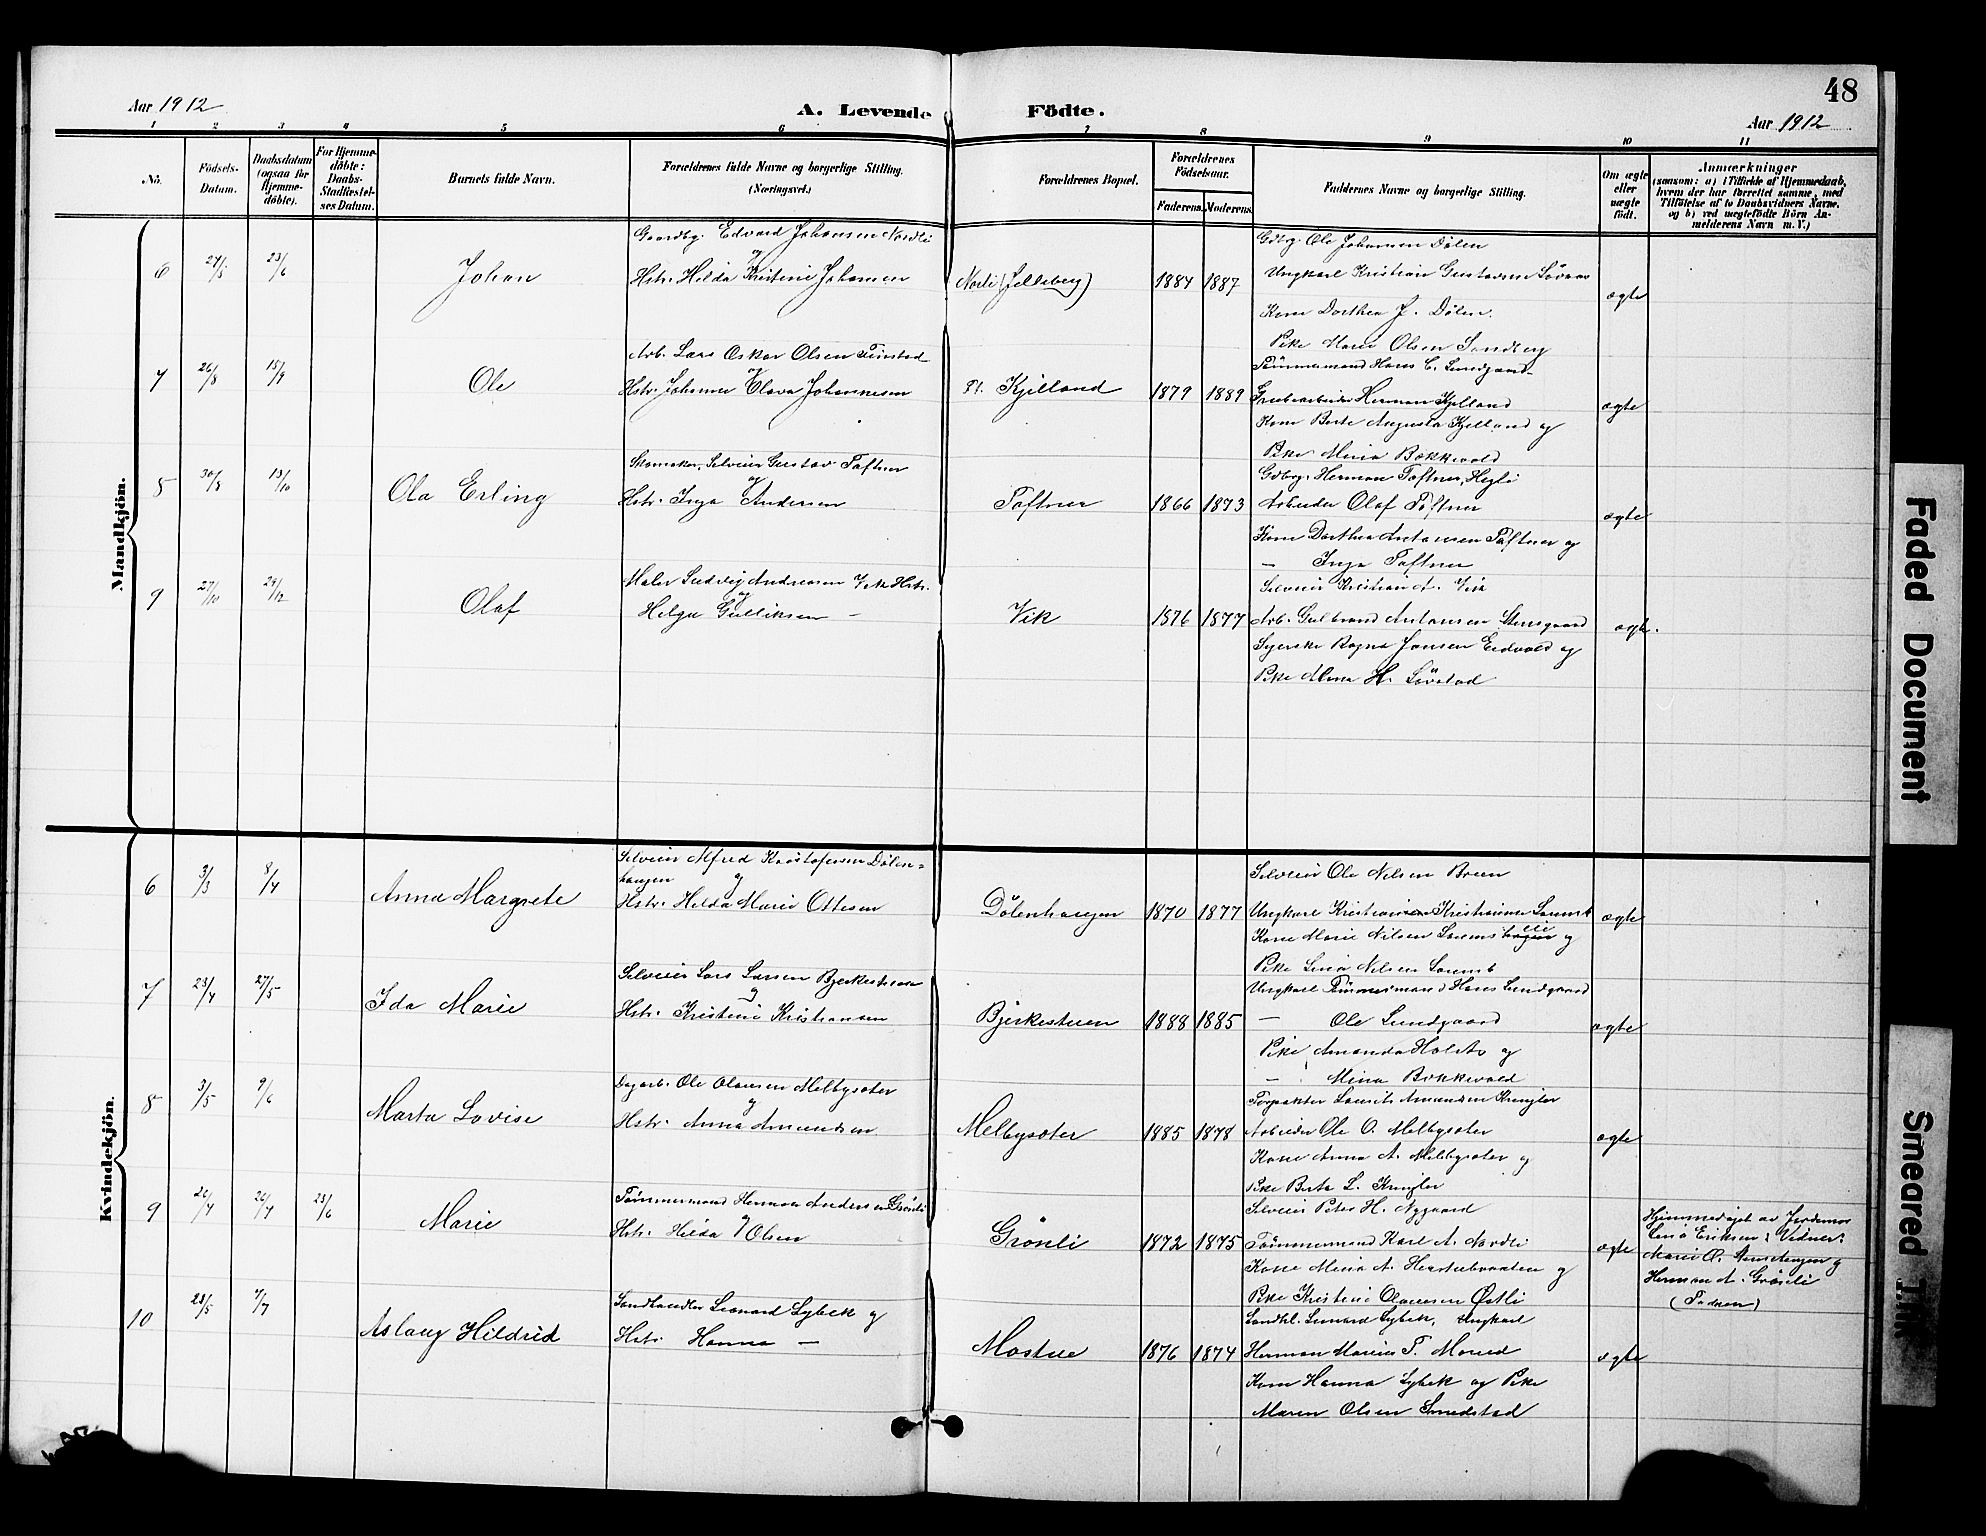 48
Aar 1912
A. Levende Födte.
Aar 1912
1 2 3 4 5 6 7 8 9 10 11
No.
Födsels-Datum.
Daabsdatum (ogsaa for Hjemmedöbte).
For Hjemmedöbte: Daabs-Stadfæstelses Datum.
Barnets fulde Navn.
Forældrenes fulde Navne og borgerlige Stilling. (Næringsvei.)
Forældrenes Bopæl.
Forældrenes Födselsaar.
Faderens. Moderens.
Faddernes Navne og borgerlige Stilling.
Om ægte eller uægte födt.
Anmærkninger
(saasom: a) i Tilfælde af Hjemmedaab, hvem der har forrettet samme, med Tilföielse af to Daabsvidners Navne, og b) ved uægtefödte Börn Anmelderens Navn m. V.)
Mandkjön.
6 24/5 23/6 Johan
Gaardbr. Edvard Johansen Nordli
og
Hstr. Hilda Kristine Johansen
Norli (Jelleberg) 1884 1887
Gdbr. Ole Johansen Dölen
Ungkarl Kristian Gustavsen
Kone Dorthea J. Dölen.
Pike Marie Olsen Sandberg
ægte
7 26/8 15/9 Ole
Arb. Lars Oskar Olsen
og
Hstr. Johanna Olava Johannesen
Pt. Kjelland 1879 1889
Tömmermand Hans C. Lundgaard
Herman Kjelland
Kone Berte Augusta Kjelland og
Pike Mina Bækkevold
ægte
8 30/8 13/10 Ola Erling
Skomaker, Selveier Gustav Toftner
og
Hstr. Inga Andersen
Toftner 1866 1873
Gdbrg. Herman Toftner, Hegli
Arbeider Olaf Toftner
Kone Dorthea Antonsen Toftner og
— Inga Toftner
ægte
9 27/10 29/12 Olaf
Maler Ludvig Andreasen Vik Hstr.
og
Helga Gulliksen —
Vik 1876 1877
Selveier Kristian A. Vik
Arb. Gulbrand Antonsen Stensgaard
Syerske Ragna Jansen Eidvold og
Pike Anna H. Sörstad
ægte.
Kvindekjön.
6 3/3 8/4 Anna Margrete
Selveier Alfred Kristofersen Dölen-
haugen og
Hstr. Hilda Marie Ottesen
Dölenhaugen 1870 1877
Selveier Ole Nilsen Breen
Ungkarl Kristian Kristiansen
Kone Marie Nilsen og
Pike Lina Nilsen
ægte
7 23/4 27/5 Ida Marie
Selveier Lars Larsen Bjerkestuen
og
Hstr. Kristine Kristiansen
Bjerkestuen 1888 1885
Ungkarl Tömmermand Hans Lundgaard
— Ole Lundgaard
Pike Amanda Holste og
— Mina Bækkevold
ægte
8 3/5 9/6 Marta Lovise
Dagarb. Ole Olausen Melbysæter
og
Hstr. Anna Amundsen
Melbysæter 1885 1878
Forpakter Laurits Amundsen Kringler
Arbeider Ole O. Melbysæter
Kone Anna A. Melbysæter og
Pike Berta L. Kringler
ægte
9 26/4 26/4 23/6 Marie
Tömmermand Herman Andersen Grönli
og
Hstr. Hilda Olsen
Grönli 1872 1875
Selveier Peter H. Nygaard
Tömmermand Karl A. Nordli
Kone Mina A. og
Pike Kristine Olausen Østli
ægte
Hjemmedöpt av Jordemor
Lena Eriksen; Vidner:
Marie O. og
Herman A. Grönli
(Faderen)
10 28/5 7/7 Aslaug Hildrid
Landhandler Leonard Lybek og
Hstr. Hanna —
Mostue 1876 1874
Landhl. Leonard Lybek, Ungkarl
Herman Marius T. Moned
Kone Hanna Lybek og Pike
Maren Olsen Smedstad
ægte
Faded Document
Smeared Ink